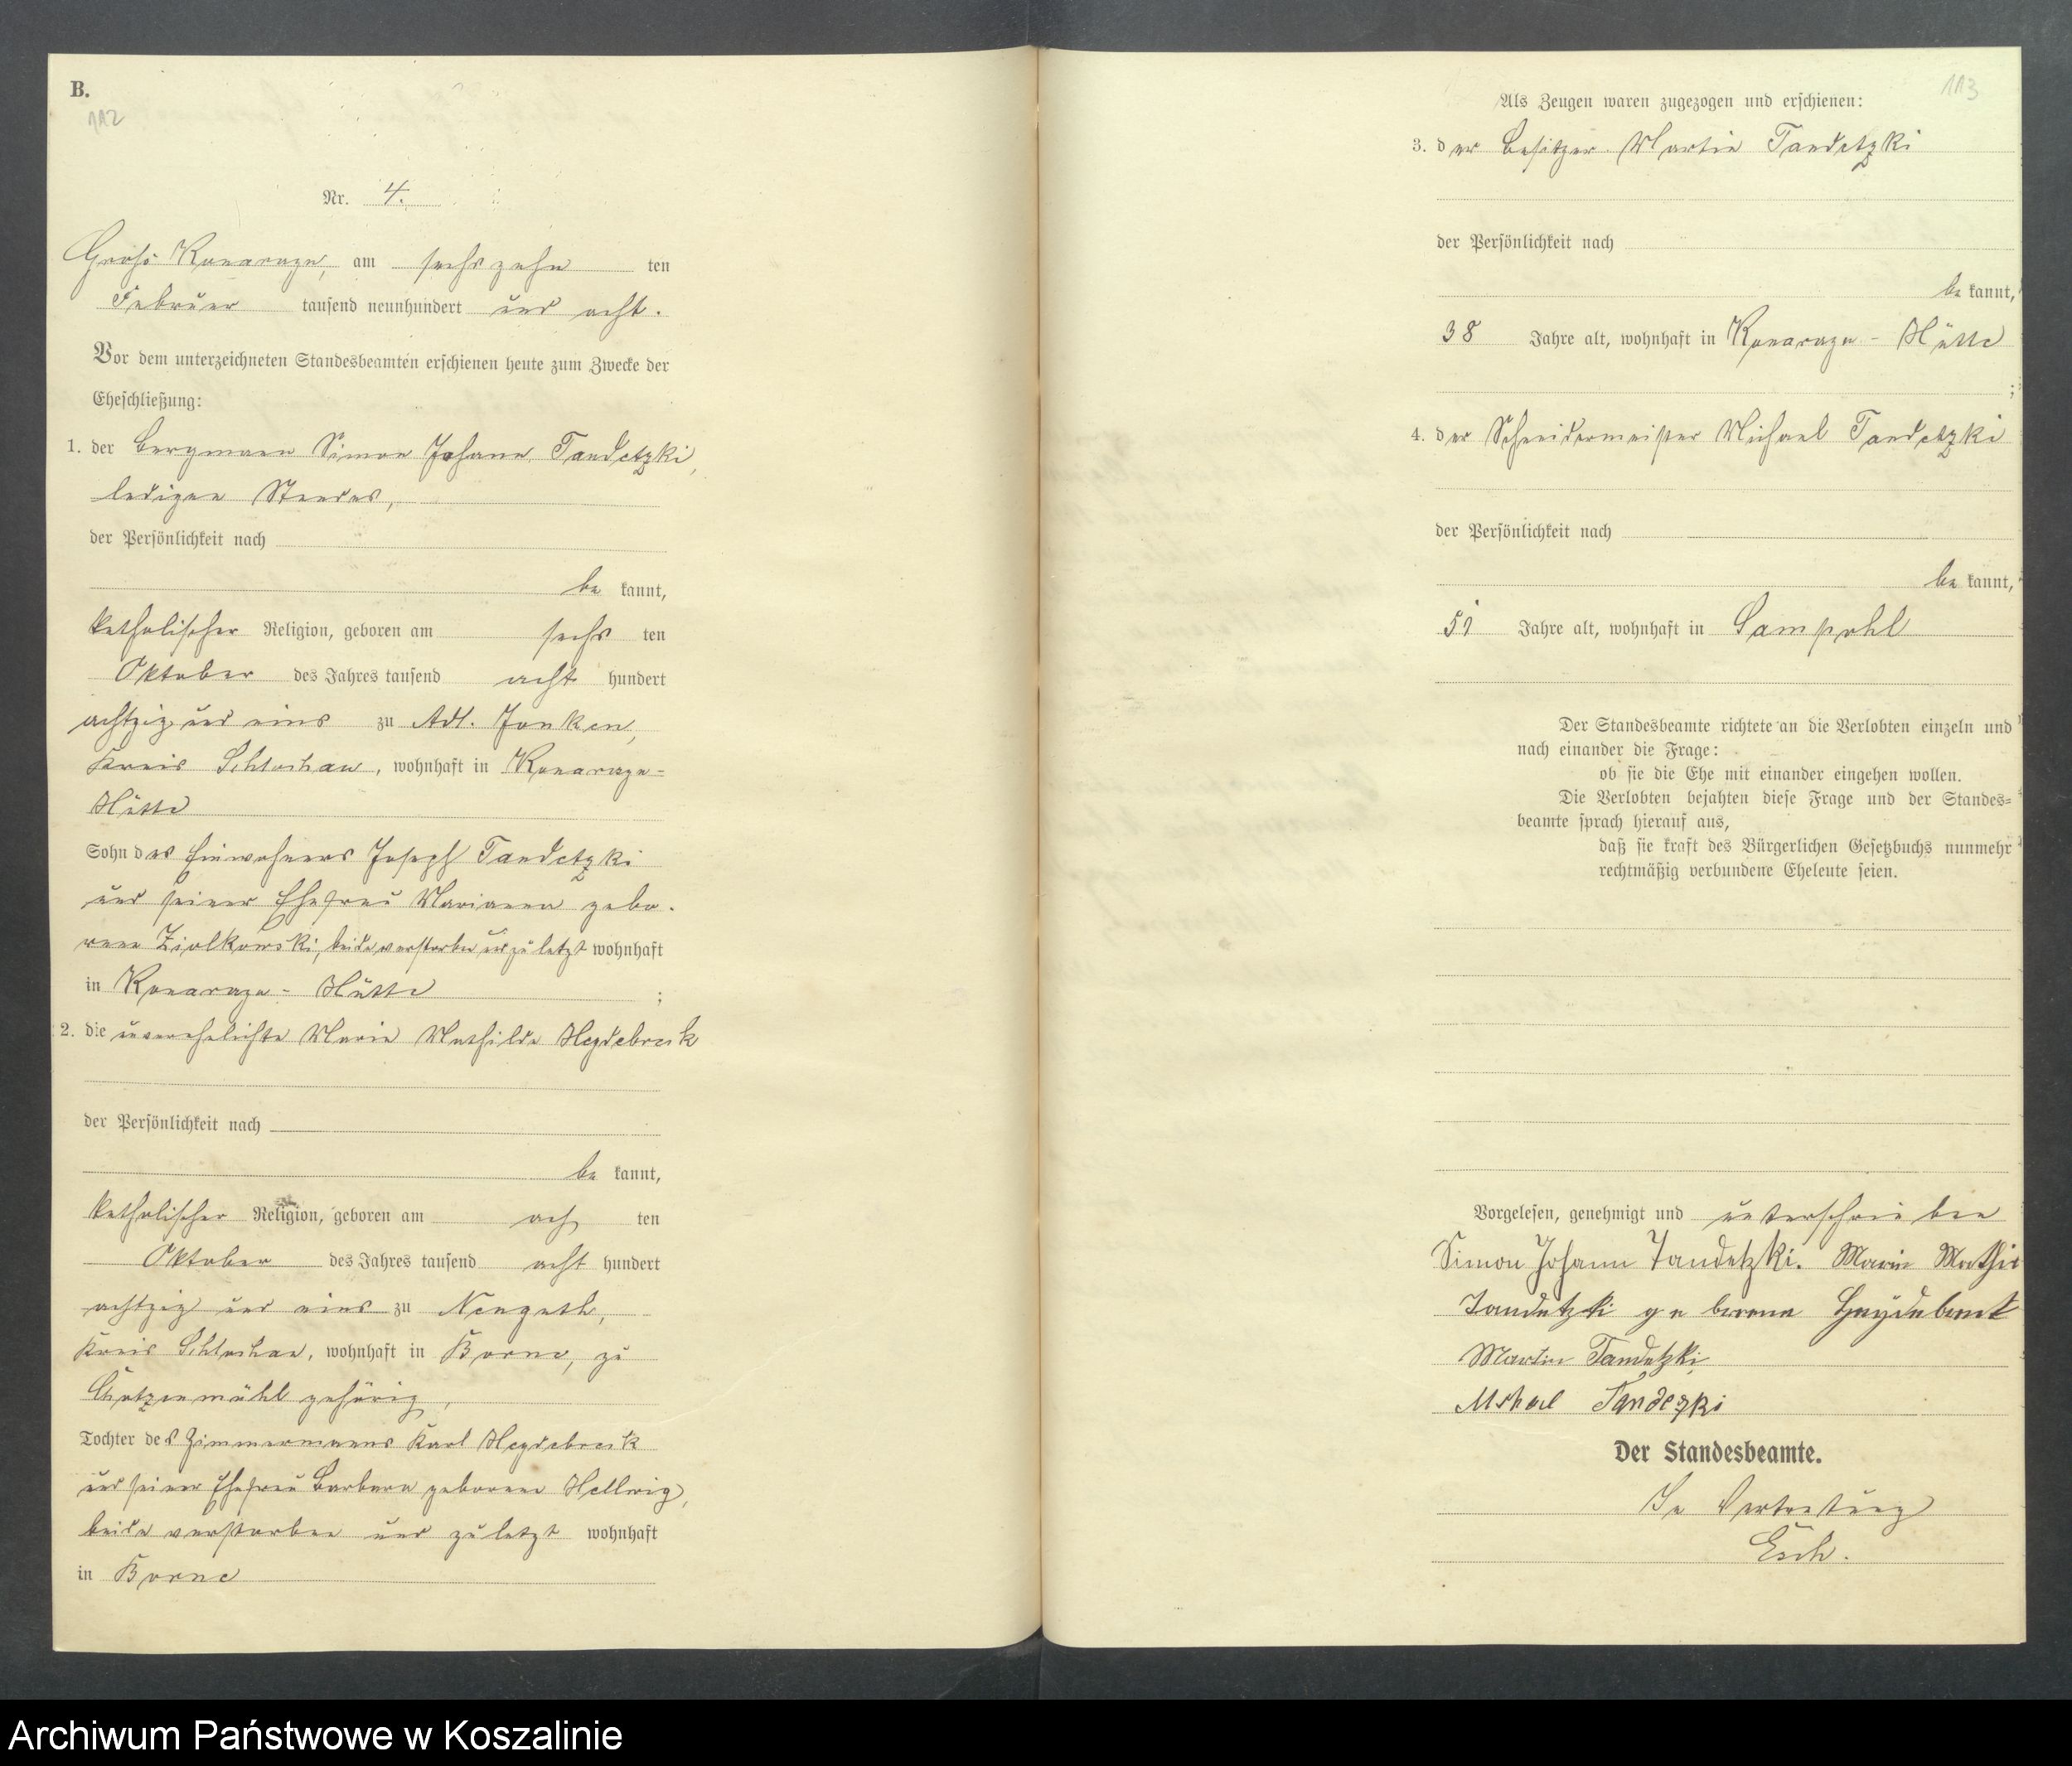 B.
112
Nr. 4.
Groß Konarczyn, am sechszehn ten
Februar tausend neunhundert und acht.
Vor dem unterzeichneten Standesbeamten erschienen heute zum Zwecke der
Eheschließung:
1. der Bergmann Simon Johann Tandetzki,
ledigen Standes,
der Persönlichkeit nach
be kannt,
katholischer Religion, geboren am sechs ten
Oktober des Jahres tausend acht hundert
achtzig und eins zu Adl.
Kreis Schlochau, wohnhaft in Konarczyn=
Hütte
Sohn des Einwohners Joseph Tandetzki
und seiner Ehefrau Marianna gebo-
rene Ziolkowski, beide verstorben und zuletzt wohnhaft
in Konarczyn- Hütte ;
2. die unverehelichte Marie Mathilde Heydebreck
der Persönlichkeit nach
be kannt,
katholischer Religion, geboren am ach ten
Oktober des Jahres tausend acht hundert
achtzig und eins zu Neuguth,
Kreis Schlochau, wohnhaft in Borne, zu
gehörig,
Tochter des Zimmermanns Karl Heydebreck
und seiner Ehefrau Barbara geborene Hellwig,
beide verstorben und zuletzt wohnhaft
in Borne
113
Als Zeugen waren zugezogen und erschienen:
3. der Besitzer Martin Tandetzki
der Persönlichkeit nach
be kannt,
38 Jahre alt, wohnhaft in Konarczyn - Hütte
;
4. der Schneidermeister Michael Tandetzki
der Persönlichkeit nach
be kannt,
51 Jahre alt, wohnhaft in Sampohl
Der Standesbeamte richtete an die Verlobten einzeln und
nach einander die Frage:
ob sie die Ehe mit einander eingehen wollen.
Die Verlobten bejahten diese Frage und der Standes=
beamte sprach hierauf aus,
daß sie kraft des Bürgerlichen Gesetzbuchs nunmehr
rechtmäßig verbundene Eheleute seien.
Vorgelesen, genehmigt und unterschrieben
Simon Johann Tandetzki. Marie
Tandetzki geborene Heydebreck
Martin Tandetzki
Tandezki
Der Standesbeamte.
In Vertretung
Esch.
Archiwum Państwowe w Koszalinie